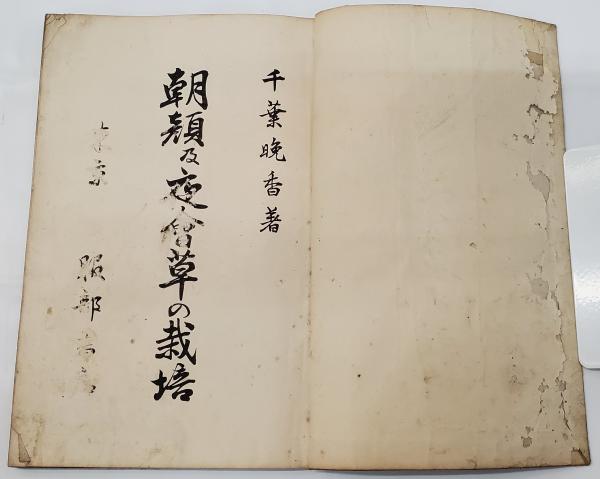 千葉晩香著
朝顔及夜會草の栽培
東京
服部書店